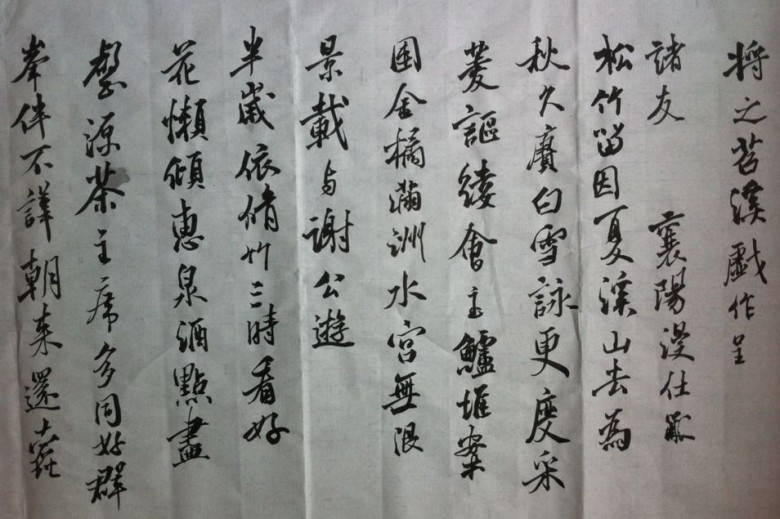 將之苕溪戯作呈
諸友 襄陽漫仕黻
松竹留因夏溪山去為
秋久賡白雪詠更度采
菱謳縷會玉鱸堆案
團金橘滿洲水宮無限
景載与謝公遊
半歲依脩竹三時看好
花懶傾惠泉酒點盡
壑源茶主席多同好群
峯伴不譁朝來還蠹